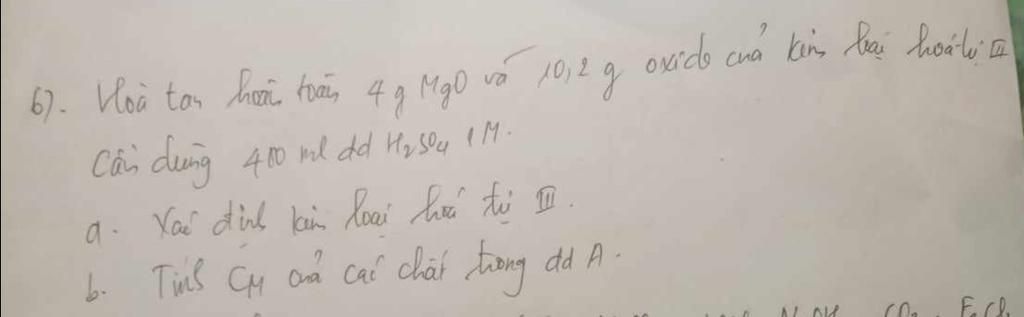 6). Hoà tan hoàn toàn 4 g MgO và 10,2 g oxide của kim loại hoá trị III
Cần dùng 400 ml dd H₂SO₄ 1M.
a. Xác định kim loại hoá trị III.
b. Tính CM của các chất trong dd A.